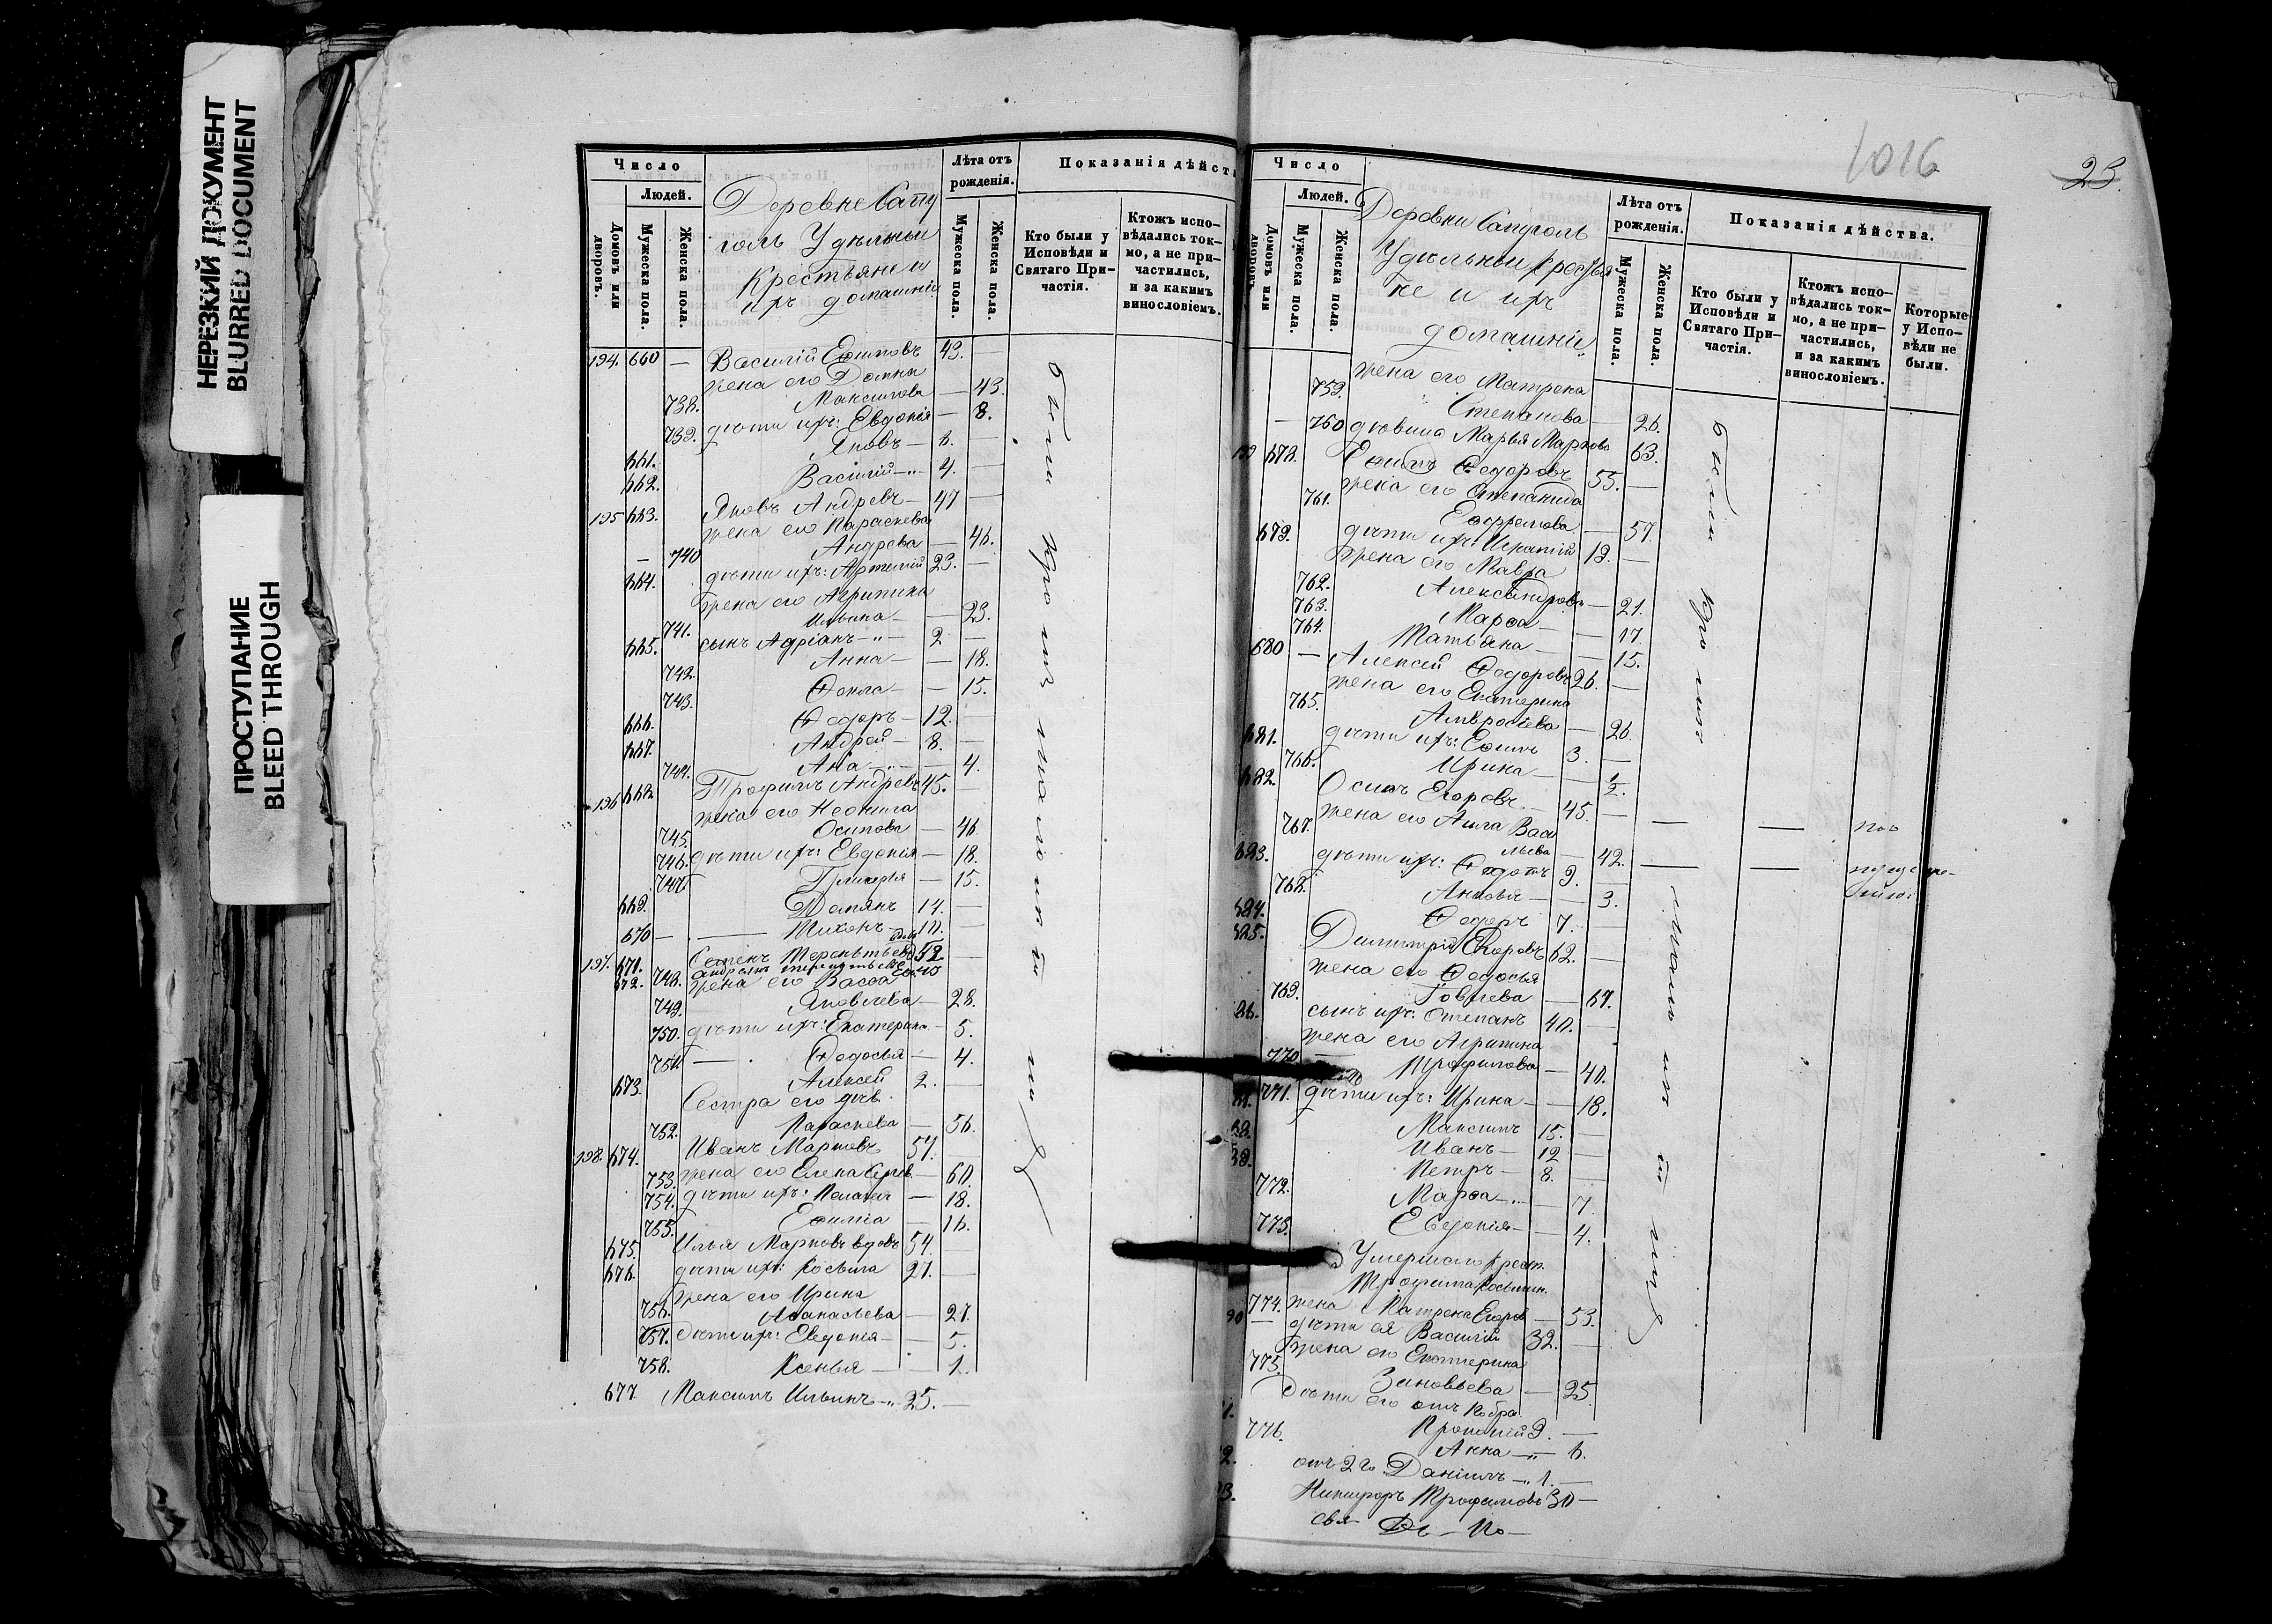 НЕРЕЗКИЙ ДОКУМЕНТ
BLURRED DOCUMENT
ПРОСТУПАНИЕ
BLEED THROUGH
Число
Людей.
Домовъ или дворовъ.
Мужеска пола.
Женска пола.
Деревне Сапу
голь Удѣльныи
Крестьяне и
ихъ домашніи
Лѣта отъ рожденія.
Мужеска пола.
Женска пола.
Показанія дѣйст
Кто были у Исповѣди и Святаго Причастія.
Ктожъ исповѣдались токмо, а не причастились, и за какимъ винословіемъ.
194. 660 — Василій Ефимовъ 43. —
жена его Домна
738. Максимова — 43.
739. дѣти ихъ: Евдокія — 8.
661. Яковъ — 6. —
662. Василій —„— 4. —
195 663. Яковъ Андревъ — 47 —
жена его Параскева
— 740 Андрева — 46.
664. дѣти ихъ: Артемій 23. —
жена его Агрипина
741. Ильина — — 23.
665. сынъ Адріанъ —„— 2 —
742. Анна — — 18.
743. Фекла — — 15.
666. Федоръ — 12. —
667. Андрей — 8. —
744. Анна —„— — 4.
196 668 Трофимъ Андревъ 45. —
жена его Неонила
745. Осипова — 46
746. дѣти ихъ: Евдокія — 18.
747 Гликерья — 15.
669. Демянъ 14. —
670 — Тихонъ — 10. —
197. 671. Семенъ Терентьевъ 52. —
672. 748. жена его Васса
749. Яковлева — 28.
750. дѣти ихъ: Екатерина — 5.
751. — Федосья — 4.
673. Алексей 2. —
Сестра его дѣв.
752. Параскева — 56.
198. 674. Иванъ Марковъ 57. —
753. жена его Елена Серг. — 60.
754. дѣти ихъ: Пелагея — 18.
755. Ефимія — 16.
675. Илья Марковъ вдовъ 54. —
676. дѣти ихъ: Косьма 27. —
жена его Ирина
756. Афанасьева — 27.
757. дѣти ихъ: Евдокія — — 5.
758. Ксенья — — 1.
677 Максимъ Ильинъ —„ 25. —
были кромѣ
1016
23.
Число
Людей.
Домовъ или дворовъ.
Мужеска пола.
Женска пола.
Деревни Сапуголь
Удѣльныи крестья
не и ихъ
домашніи
Лѣта отъ рожденія.
Мужеска пола.
Женска пола.
Показанія дѣйства.
Кто были у Исповѣди и Святаго Причастія.
Ктожъ исповѣдались токмо, а не причастились, и за какимъ винословіемъ.
Которые у Исповѣди не были.
жена его Матрена
759. Степанова — 26.
— 760 дѣвица Марья Маркова 63.
199 678. Ефимъ Федоровъ 55. —
жена его Степанида
761. Ефремова — 57.
679. дѣти ихъ: Игнатій 19. —
жена его Мавра
762. Александрова — 21.
763. Марфа — — 17.
764. Татьяна — — 15.
680 — Алексей Федоровъ 26. —
жена его Екатерина
765. Амвросіева — 26.
681. дѣти ихъ: Ефимъ 3. —
766. Ирина — — ½.
682. Осипъ Егоровъ — 45. —
767. жена его Анна Васи
льева — 42.
683. дѣти ихъ: Федотъ 9. —
768. Анисья — — 3.
684. Федоръ 7. —
685. Димитрій Егоровъ 62. —
жена его Федосья
769. Говлева — 67.
86. сынъ ихъ: Степанъ 40. —
жена его Агрипина
770 Трофимова — 40.
771. дѣти ихъ: Ирина — — 18.
Максимъ 15. —
88. Иванъ — 12 —
Петръ — 8. —
772. Марфа —„— — 7.
773. Евдокія — — 4.
Умершаго крест.
Трофима Косьмин.
774. жена Матрена Егоров — 53.
90 — дѣти ея Василій 32. —
жена его Екатерина
775. Зиновьева — 25.
дѣти его отъ 1го бра
776. Прокопій 9. —
Анна —„— 6.
отъ 2го Даніилъ —„ 1. —
Никифоръ Трофимовъ 30 —
были кромѣ
свя —